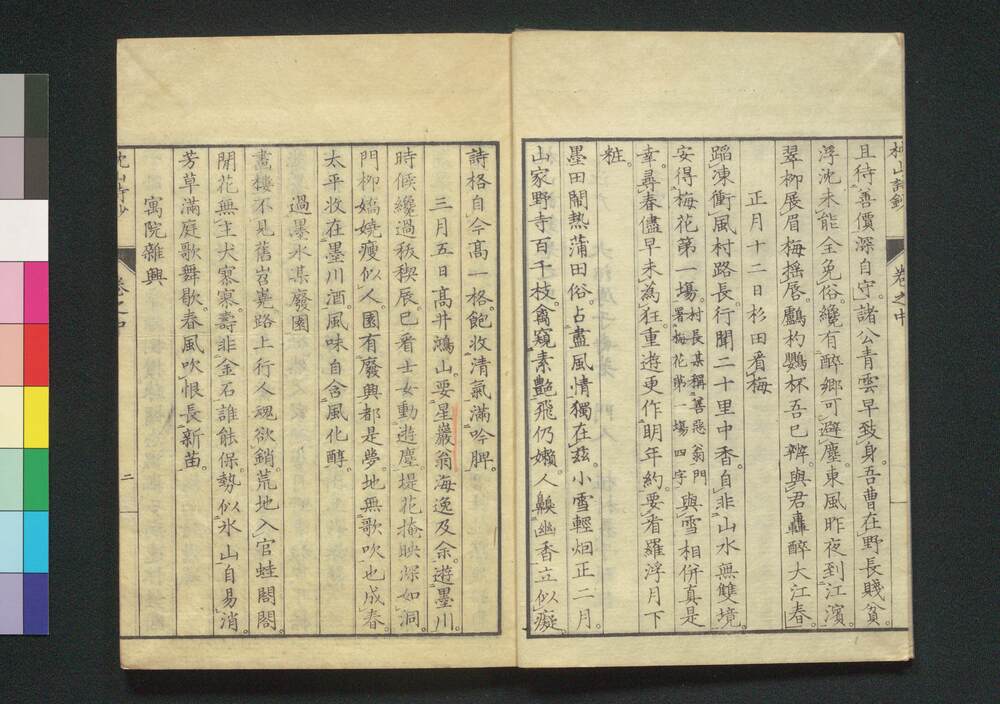 且待善價深自守諸公青雲早致身吾曹在野長賤貧
浮沈未能全免俗纔有醉鄉可避塵東風昨夜到江濱
翠柳展眉梅搖唇鸕杓鸚杯吾已辨與君轟醉大江春
正月十二日杉田看梅
蹈凍衝風村路長行聞二十里中香自非山水無雙境
安得梅花第一場村長某稱善惡翁門署梅花第一場四字與雪相併真是
幸尋春儘早未為狂重遊更作明年約要看羅浮月下
粧
墨田鬧熱蒲田俗占盡風情獨在茲小雪輕烟正二月
山家野寺百千枝禽窺素艷飛仍嬾人齅幽香立似癡
卷之中
詩格自今高一格飽收清氣滿吟脾
三月五日高井鴻山要星巖翁海逸及余遊墨川
時候纔過秡禊辰已看士女動遊塵堤花掩映深如洞
門柳嬌嬈瘦似人園有廢興都是夢地無歌吹也成春
太平收在墨川酒風味自含風化醇
過墨水某廢園
畫樓不見舊岧嶤路上行人魂欲銷荒地入官蛙閤閤
閒花無主犬寥寥壽非金石誰能保勢似氷山自易消
芳草滿庭歌舞歇春風吹恨長新苗
寓院雜興
二